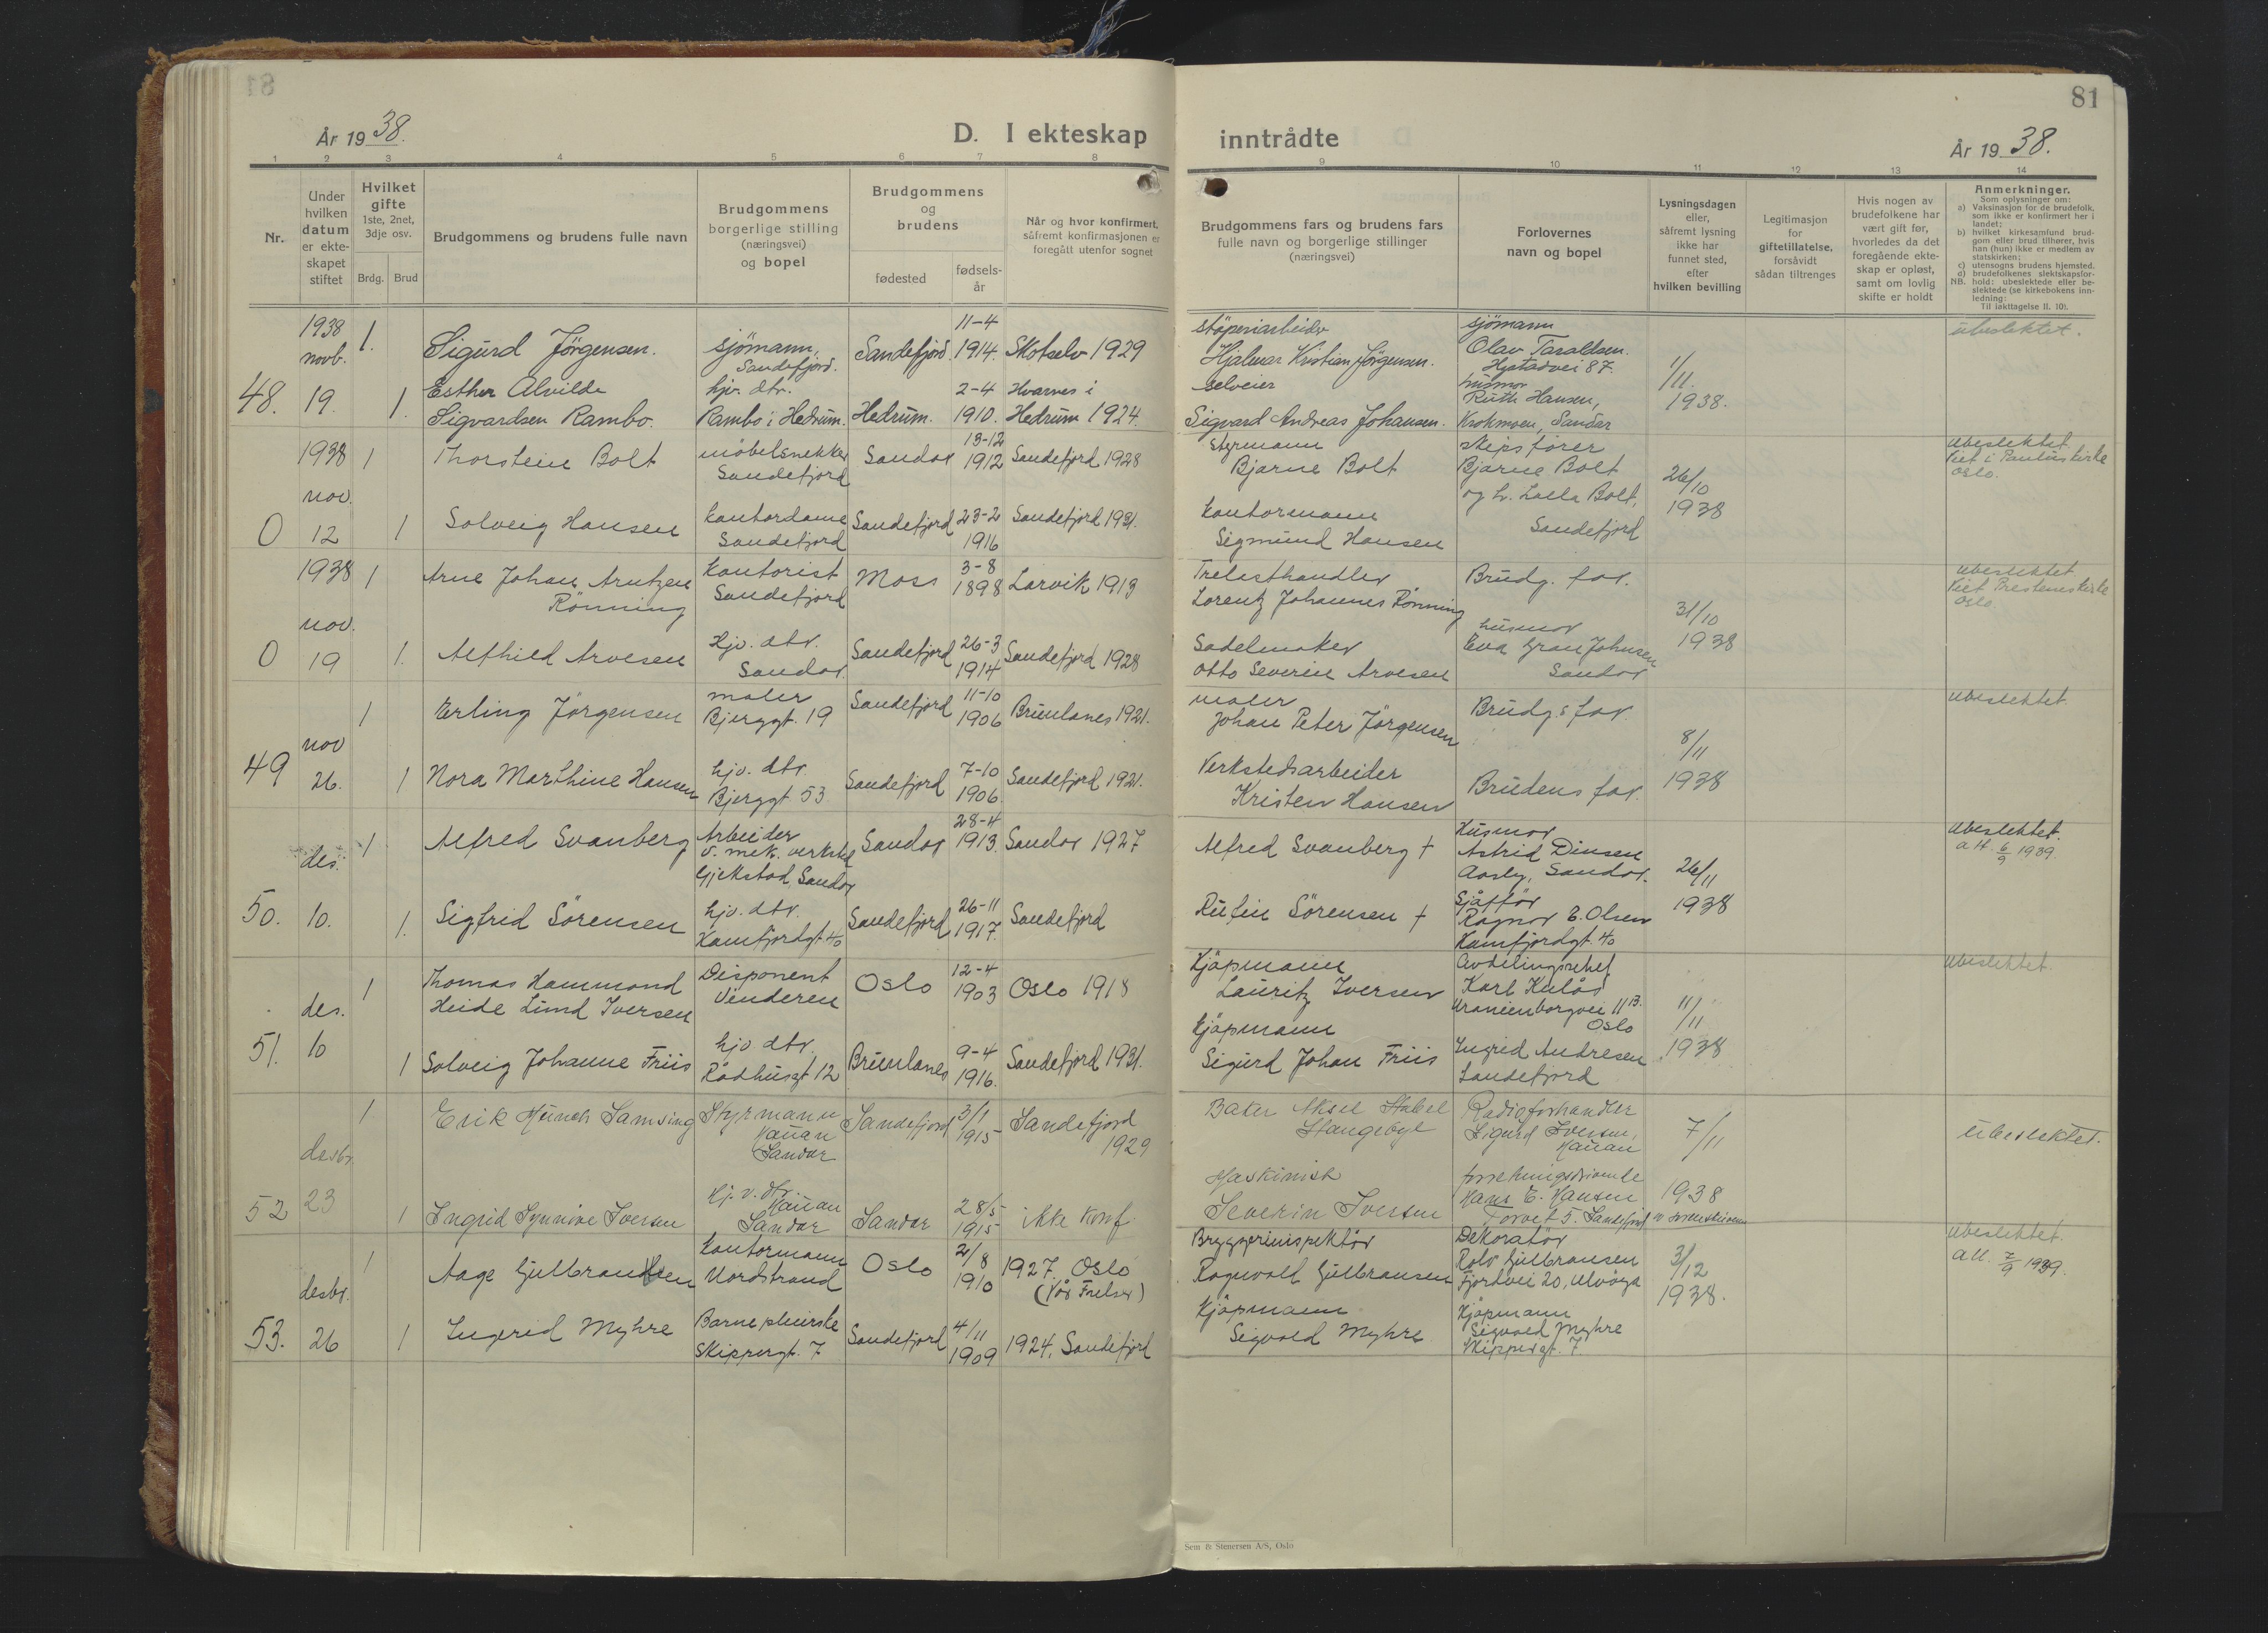 81
År 1938.
D. I ekteskap inntrådte
År 1938.
1 2 3 4 5 6 7 8 9 10 11 12 13 14
Nr.
Under
hvilken
datum
er ekte-
skapet
stiftet
Hvilket
gifte
1ste, 2net,
3dje osv.
Brdg. Brud
Brudgommens og brudens fulle navn
Brudgommens
borgerlige stilling
(næringsvei)
og bopel
Brudgommens
og
brudens
fødested
fødsels-
år
Når og hvor konfirmert,
såfremt konfirmasjonen er
foregått utenfor sognet
Brudgommens fars og brudens fars
fulle navn og borgerlige stillinger
(næringsvei)
Forlovernes
navn og bopel
Lysningsdagen
eller,
såfremt lysning
ikke har
funnet sted,
efter
hvilken bevilling
Legitimasjon
for
giftetillatelse,
forsåvidt
sådan tiltrenges
Hvis nogen av
brudefolkene har
vært gift før,
hvorledes da det
foregående ekte-
skap er opløst,
samt om lovlig
skifte er holdt
Anmerkninger.
Som oplysninger om:
a) Vaksinasjon for de brudefolk,
som ikke er konfirmert her i
landet:
b) hvilket kirkesamfund brud-
gom eller brud tilhører, hvis
han (hun) ikke er medlem av
statskirken:
c) utensogns brudens hjemsted.
d) brudefolkenes slektskapsfor-
hold: ubeslektede eller be-
slektede (se kirkebokens inn-
ledning:
NB. Til iakttagelse II. 10).
48.
1938
novb.
19.
1.
Sigurd Jörgensen.
sjömann,
Sandefjord.
Sandefjord.
11-4
1914.
Skotselv 1929
støperiarbeider
Hjalmar Kristian Jörgensen.
sjömann
Olav Taraldsen.
Hystadvei 87.
1/11.
1938.
ubeslektet.
1.
Esther Alvilde
Sigvardsen Rambo.
hjv. dtr.
Rambo i Hedrum.
Hedrum.
2-4
1910.
Hvarnes i
Hedrum 1924.
selveier
Sigvard Andreas Johansen.
husmor
Ruth Hansen,
Krokmoen, Sandar
0
1938
nov.
12
1
Thorstein Bolt
møbelsnekker
Sandefjord
Sandar
13-12
1912
Sandefjord 1928
Styrmann
Bjarne Bolt
skipsfører
Bjarne Bolt
og h. Lalla Bolt,
Sandefjord
26/10
1938
ubeslektet
Viet i Paulus kirke
Oslo.
1
Solveig Hansen
kontordame
Sandefjord
Sandefjord
23-2
1916
Sandefjord 1931.
Kontormann
Sigmund Hansen
0
1938
nov.
19
1
Arne Johan Arntzen
Rönning
Kontorist
Sandefjord
Moss
3-8
1898
Larvik 1913
Trelasthandler
Lorentz Johannes Rønning
Brudg. far.
31/10
1938
ubeslektet
Oslo.
1.
Alfhild Arvesen
Hjv. dtr.
Sandar.
Sandefjord
26-3
1914
Sandefjord 1928
Sadelmaker
Otto Severin Arvesen
husmor
Eva Gran Johnsen
Sandar
49
nov
26.
1
Erling Jörgensen
maler
Bjerggt. 19
Sandefjord
11-10
1906
Brunlanes 1921.
maler
Johan Peter Jörgensen
Brudg.s far.
8/11
1938
ubeslektet.
1
Nora Marthine Hansen
hjv. dtr.
Bjerggt 53
Sandefjord
7-10
1906.
Sandefjord 1921.
Verkstedsarbeider
Kristen Hansen
Brudens far.
50.
des.
10.
1
Alfred Svanberg
Arbeider
v. mek. verksted
Gjekstad, Sandar
Sandar
28-4
1913.
Sandar 1927
Alfred Svanberg +
Husmor
Astrid Dinsen
Aasly, Sandar.
26/11
1938
ubeslektet.
att. 6/9 1939.
1.
Sigfrid Sörensen
hjv. dtr.
Kamfjordgt. 40
Sandefjord
26-11
1917.
Sandefjord
Rufin Sörensen +
Sjåffør
Ragnar E. Olsen
Kamfjordgt. 40
51.
des.
10
1
Thomas Hammond
Heide Lund Iversen
Disponent
Vinderen
Oslo
12-4
1903
Oslo 1918
Kjøpmann
Lauritz Iversen
Avdelingschef
Karl Hulås
Uranienborgvei 11 B.
Oslo
11/11
1938
ubeslektet.
1
Solveig Johanne Friis
hjv dtr.
Rådhusgt 12
Brunlanes
9-4
1916.
Sandefjord 1931.
Kjøpmann
Sigurd Johan Friis
Ingrid Andresen
Sandefjord
52
desbr.
23
1
Erik Münch Samsing
Styrmann
Hauan
Sandar
Sandefjord
3/1
1915
Sandefjord
1929
Baker Aksel Stabel
Stangebye
Radioforhandler
Sigurd Iversen,
Hauan
7/11
1938
ubeslektet.
1
Ingrid Synnöve Iversen
Hj. v. dtr.
Hauan
Sandar
Sandar
28/5
1915
ikke konf.
Maskinist
Severin Iversen
Hans E. Hansen
Torvet 5. Sandefjord
53.
desbr.
26
1
Aage Gulbrandsen
kontormann
Nordstrand
Oslo
2/8
1910
1927. Oslo
(Vår Frelser)
Bryggeriinspektör
Ragnvald Gulbransen
Dekoratør
Rolv Gulbransen
Fjordvei 20, Ulvöya
3/12
1938.
ubeslektet.
att. 2/9 1939.
1
Ingrid Myhre
Barnepleierske
Skippergt. 7
Sandefjord
4/11
1909
1924. Sandefjord
Kjøpmann
Sigvald Myhre
Kjøpmann
Sigvald Myhre
Skippergt. 7.
Sem & Stenersen A/S, Oslo